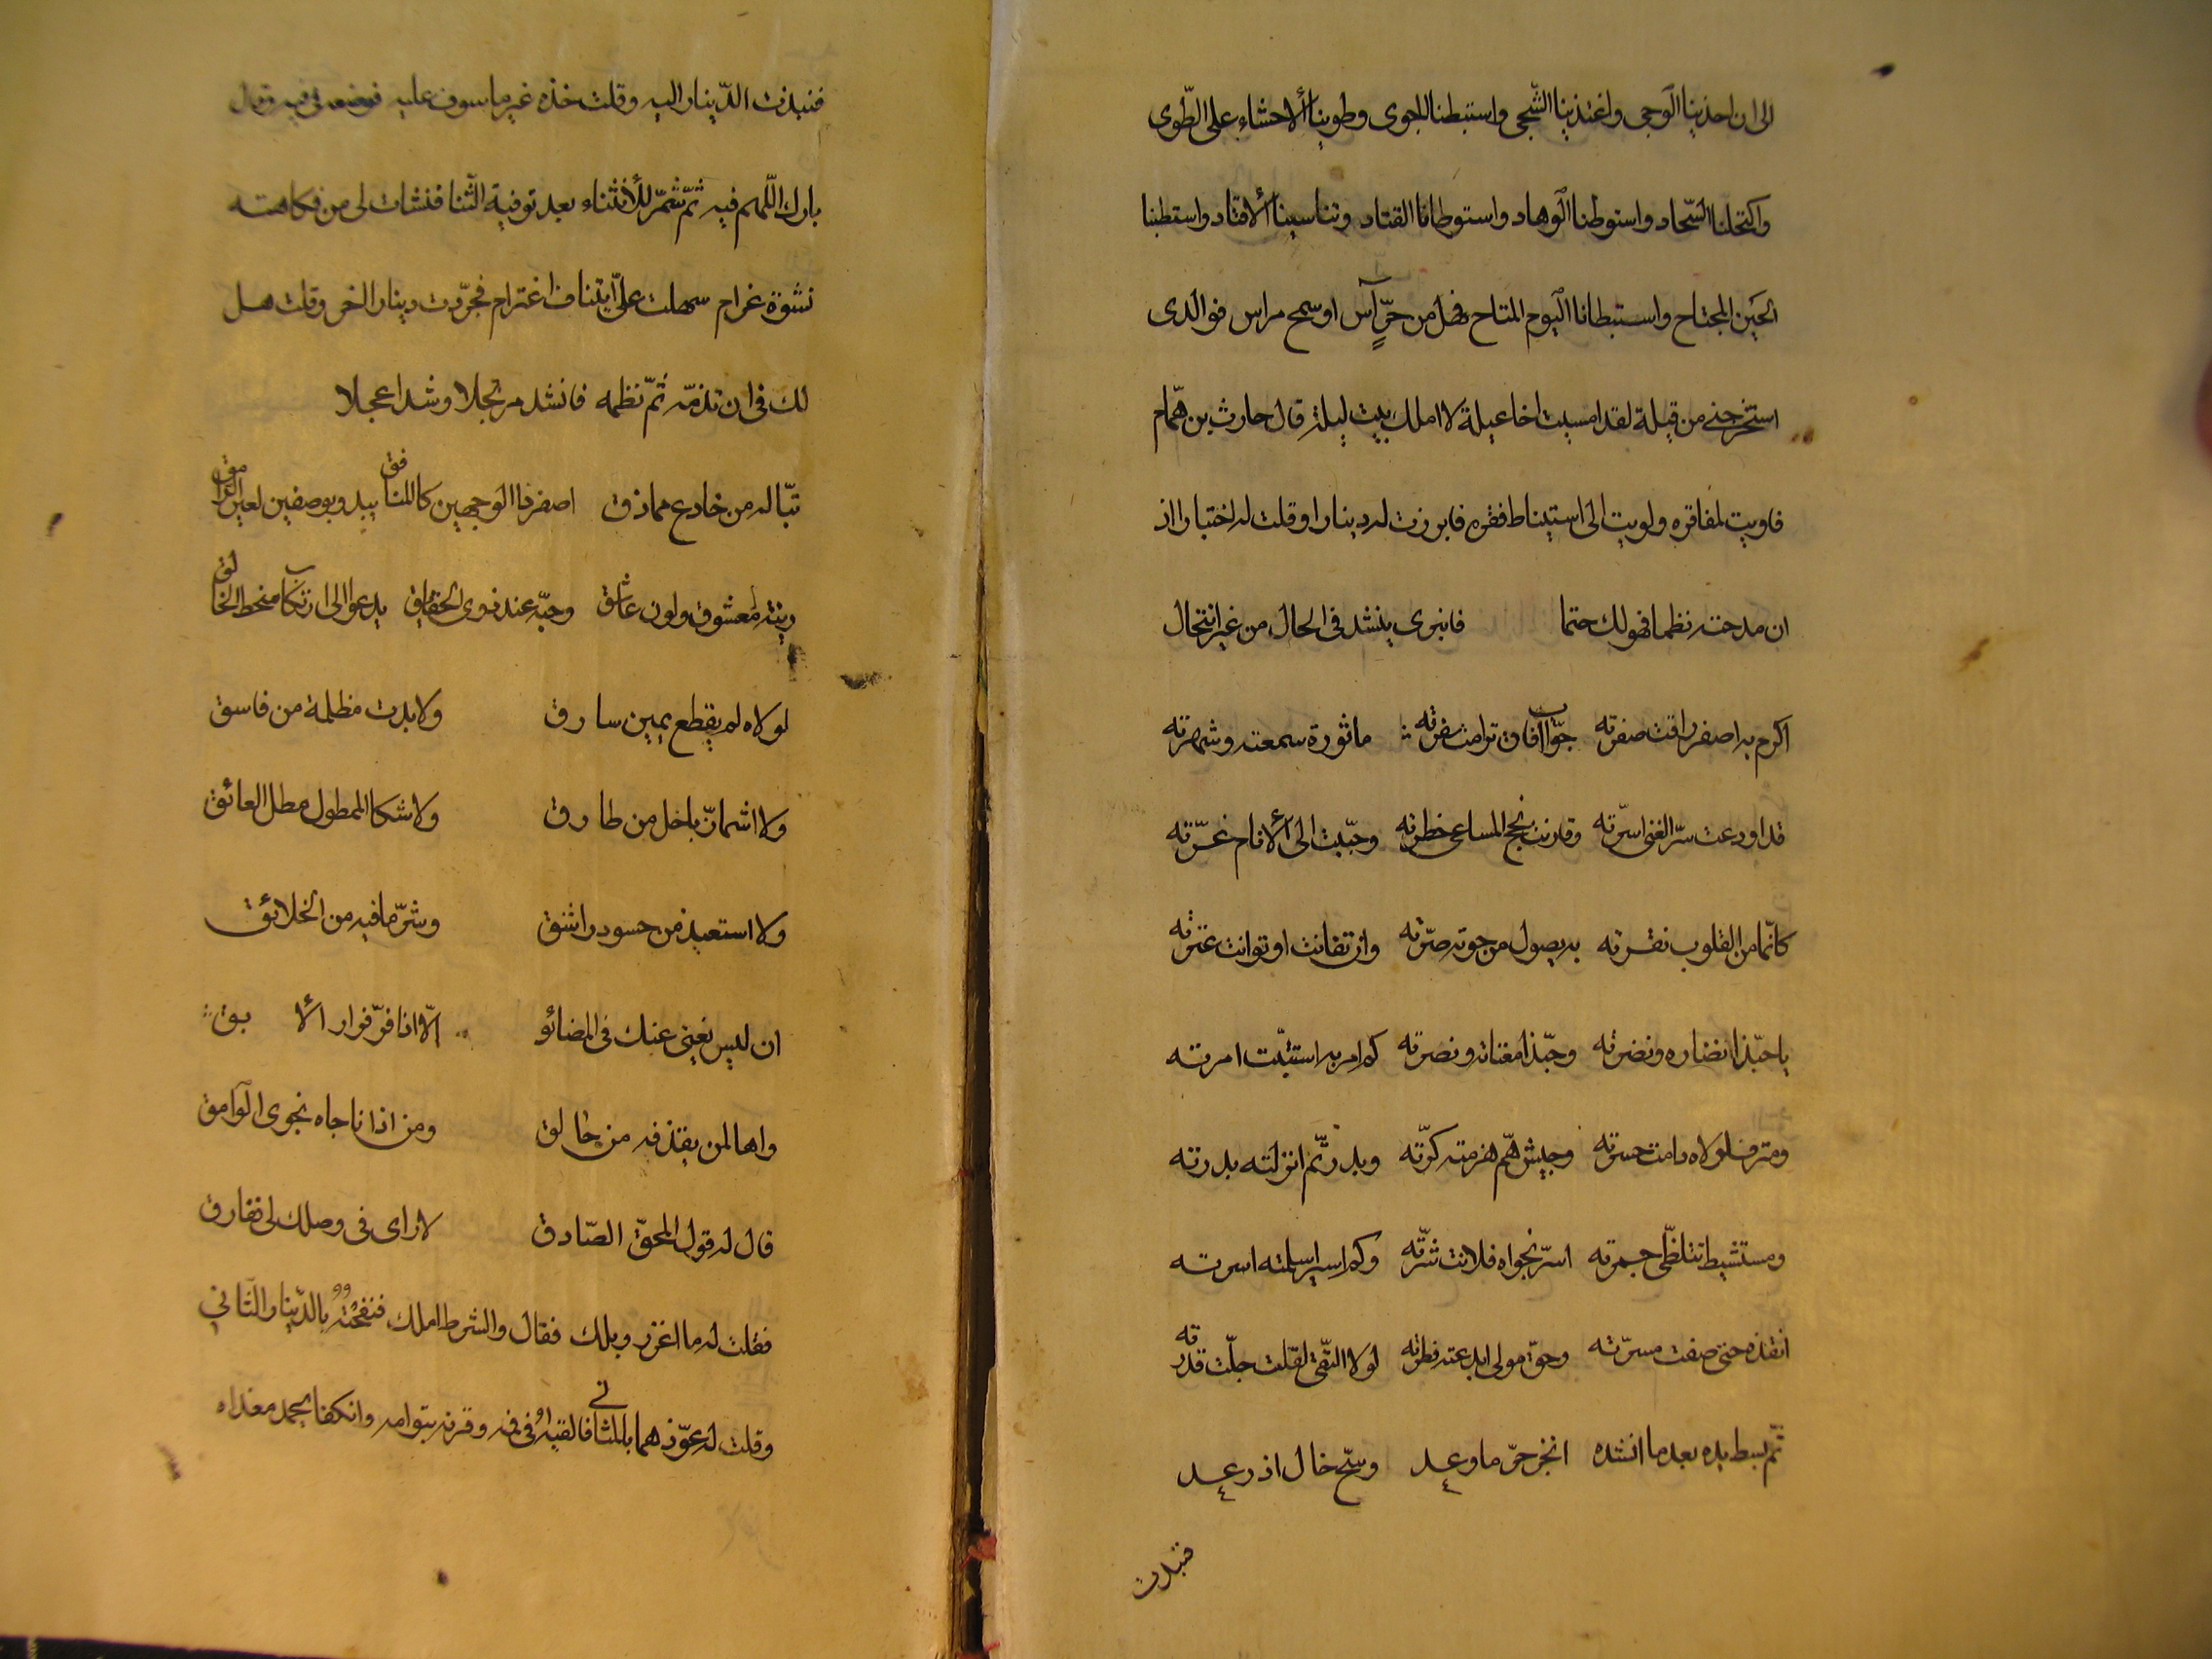 الى ان احذينا الوجى واغتذينا الشّجى واستبطنا الجوى وطوينا الأحشاء على الطّوى
واكتحلنا السّهاد واستوطنا الوهاد واستوطانا القتاد وتناسينا الأقتاد واستطبنا
الحَين المجتاح واستبطانا اليوم المتاح فهل من حرٍّ آس او سمح مراس فو الذى
استخرجنى من قيلة لقد امسيت اخا عيلة لا املك بيت ليلة قال حارث بن همّام
فاويت لمفاقره ولويت الى استيناط فقره فابرزت له دينارا وقلت له اختبارا اذ
ان مدحته نظما فهو لك حتما فانبرى ينشد فى الحال من غير انتحال
اكرم به اصفر راقت صفرته جوّاب افاق ترامت سفرته ماثورة سمعته وشهرته
قد اودعت سرّ الغنى اسرّته وقارنت نجح المساعى خطرته وحبّبت الى الأنام غرّته
كانّما من القلوب نقرته به يصول من حوته صرّته وان تفانت او توانت عترته
يا حبّذا نضاره ونضرته وحبّذا مغناته ونصرته كم امر به استتبّت امرته
ومترف لولاه دامت حسرته وجيش همّ هزمته كرّته وبدر تمّ انزلته بدرته
ومستشيط تتلظّى جمرته اسرّ نجواه فلانت شرّته وكم اسير اسلمته اسرته
انقذه حتى صفت مسرّته وحق مولى ابدعته فطرته لولا التّقى لقلت جلّت قدرته
ثمّ بسط يده بعد ما انشده انجز حرّ ما وعد وسحّ خال اذ رعد
فنبذت
فنبذت الدّينار اليه وقلت خذه غير ماسوف عليه فوضعه فى فيه وقال
بارك اللّهم فيه ثمّ شمّر للأنثناء بعد توفية الثنا فنشات لى من فكاهته
نشوة غرام سهلت علىّ ايتناف اغترام فجرّدت دينارا اخر وقلت هل
لك فى ان تذمّه ثمّ تضمه فانشد مرتجلا وشدا عجلا
تبّا له من خادع مماذق اصفر ذا الوجهين كالمنافق يبدو بوصفين لعين الرّامق
زينة معشوق ولون عاشق وحبّه عند ذوى الحقايق يدعوا الى ارتكاب سخط الخالق
لولاه لم يقطع يمين سارق ولا بدت مظلمة من فاسق
ولا اشمازّ باخل من طارق ولا شكا الممطول مطل العائق
ولا استعيذ من حسود راشق وشرّ ما فيه من الخلائق
ان ليس يغنى عنك فى المضائق الّا اذا فرّ فرار الأبق
واها لمن يقذفه من حالق ومن اذا ناجاه نجوى الوامق
قال له قول المحقّ الصّادق لا راى فى وصلك لى ففارق
فقلت له ما اغزر وبلك فقال والشرط املك فنفحته بالدّينار الثّانى
وقلت له عوّذهما بالمثانى فالقاه فى فمه وقرنه بتوامه وانكفا يحمد مغداه